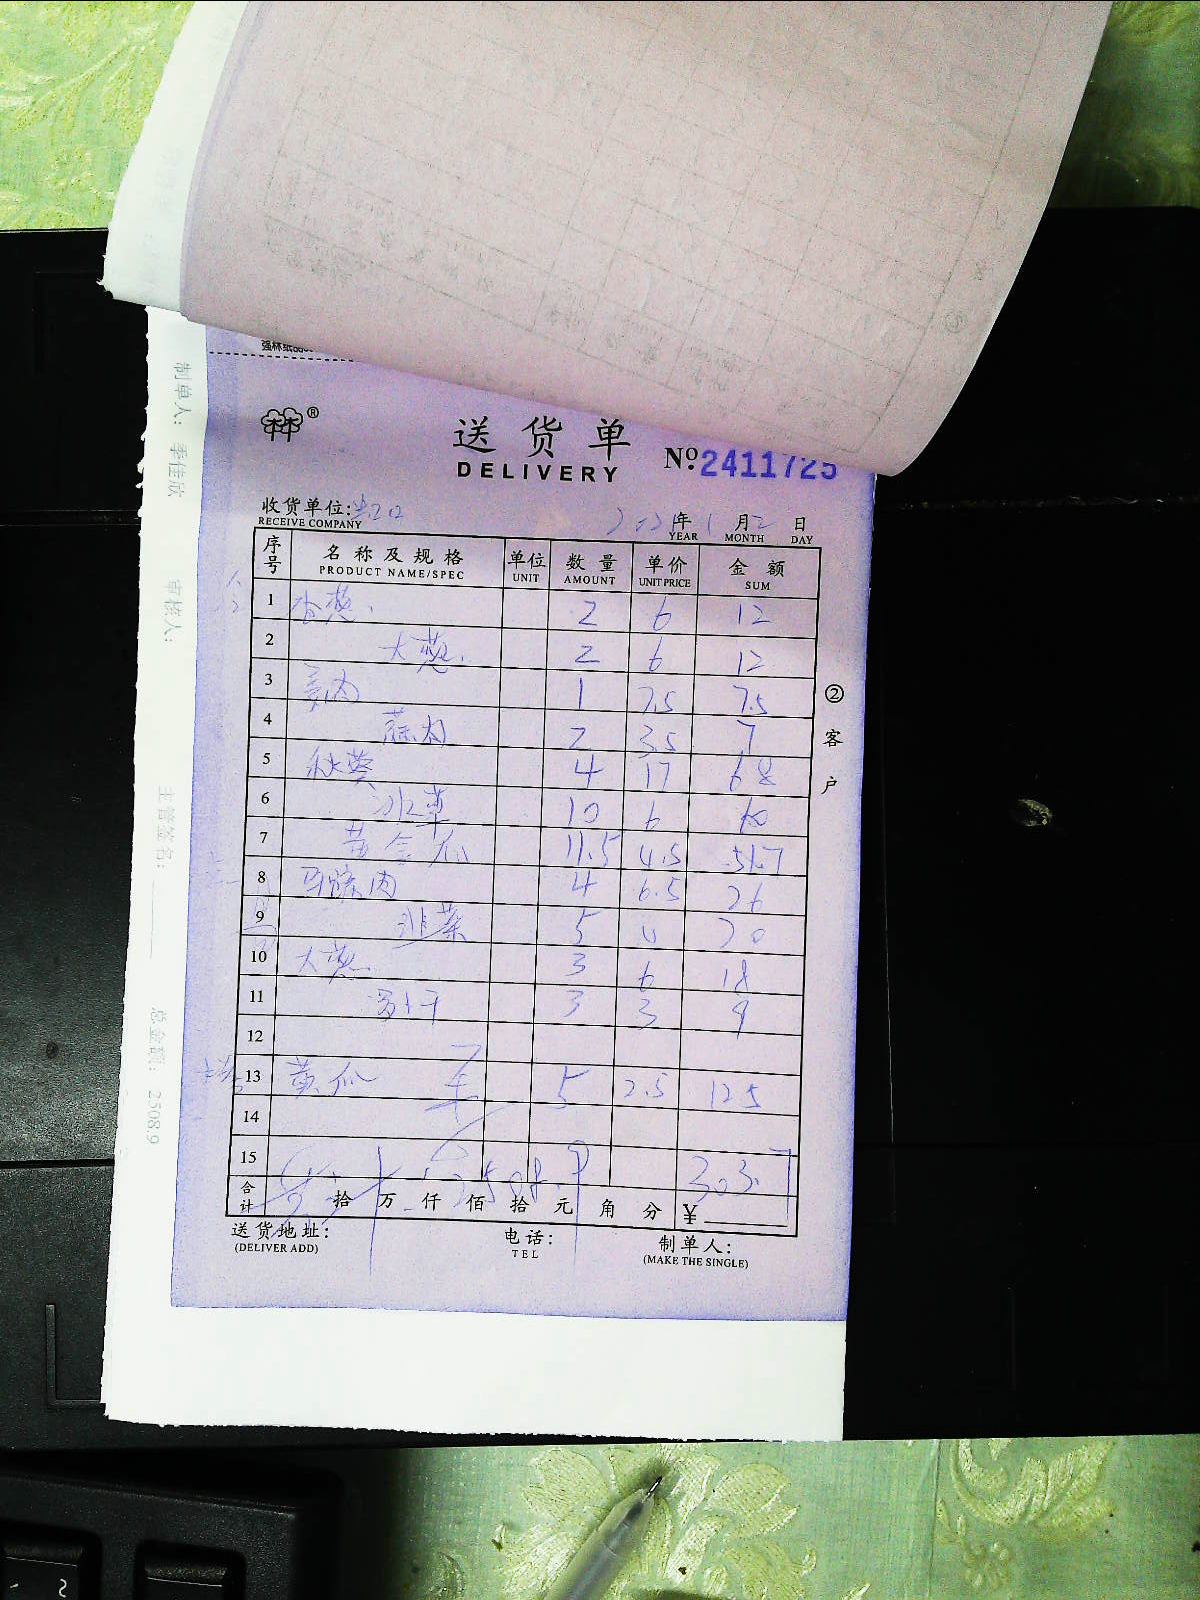 强林纸品
®
送货单
DELIVERY
№ 2411725
收货单位:
RECEIVE COMPANY
2021年 1月2日
YEAR MONTH DAY
序号 名称及规格 单位 数量 单价 金额
PRODUCT NAME/SPEC UNIT AMOUNT UNIT PRICE SUM
1 香葱 2 6 12
2 大葱 2 6 12
3 姜肉 1 7.5 7.5
4 蒜肉 2 3.5 7
5 秋葵 4 17 68
6 冰草 10 6 60
7 黄金瓜 11.5 4.5 51.7
8 马蹄肉 4 6.5 26
9 韭菜 5 4 20
10 大葱 3 6 18
11 萝卜干 3 3 9
12
13 黄瓜 5 2.5 12.5
14
15 2508.9 303.7
合计 拾 万 仟 佰 拾 元 角 分 ¥
送货地址: 电话: 制单人:
(DELIVER ADD) TEL (MAKE THE SINGLE)
②客户
制单人: 季佳欣
审核人:
主管签名:
总金额: 2508.9